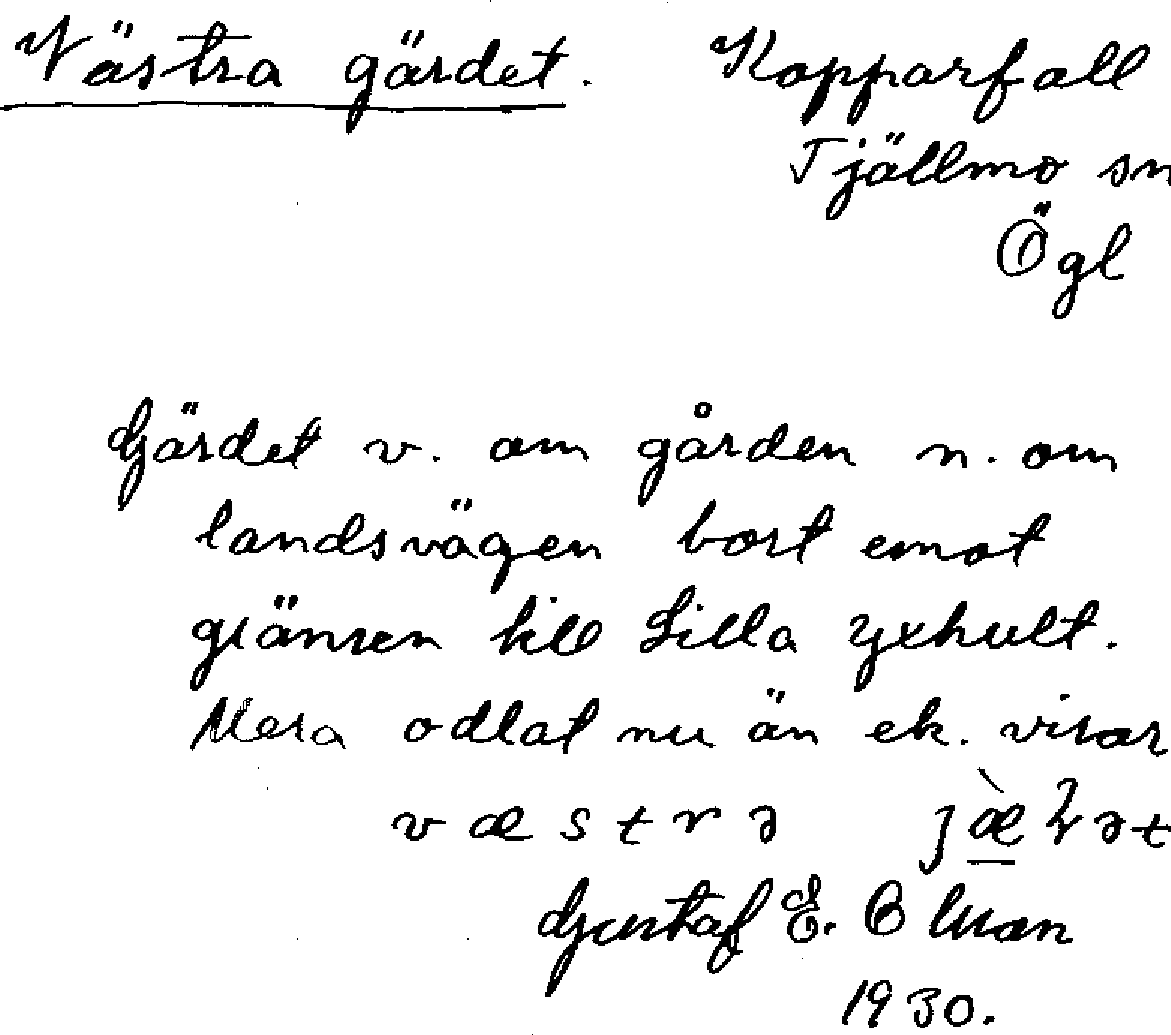 Västra gärdet. Kopparfall
Tjällmo sn
Ögl
Gärdet v. om gården n. om
landsvägen bort emot
gränsen till Lilla Yxhult.
Mera odlat nu än ek. visar
væstrə
Gustaf E.
1930.